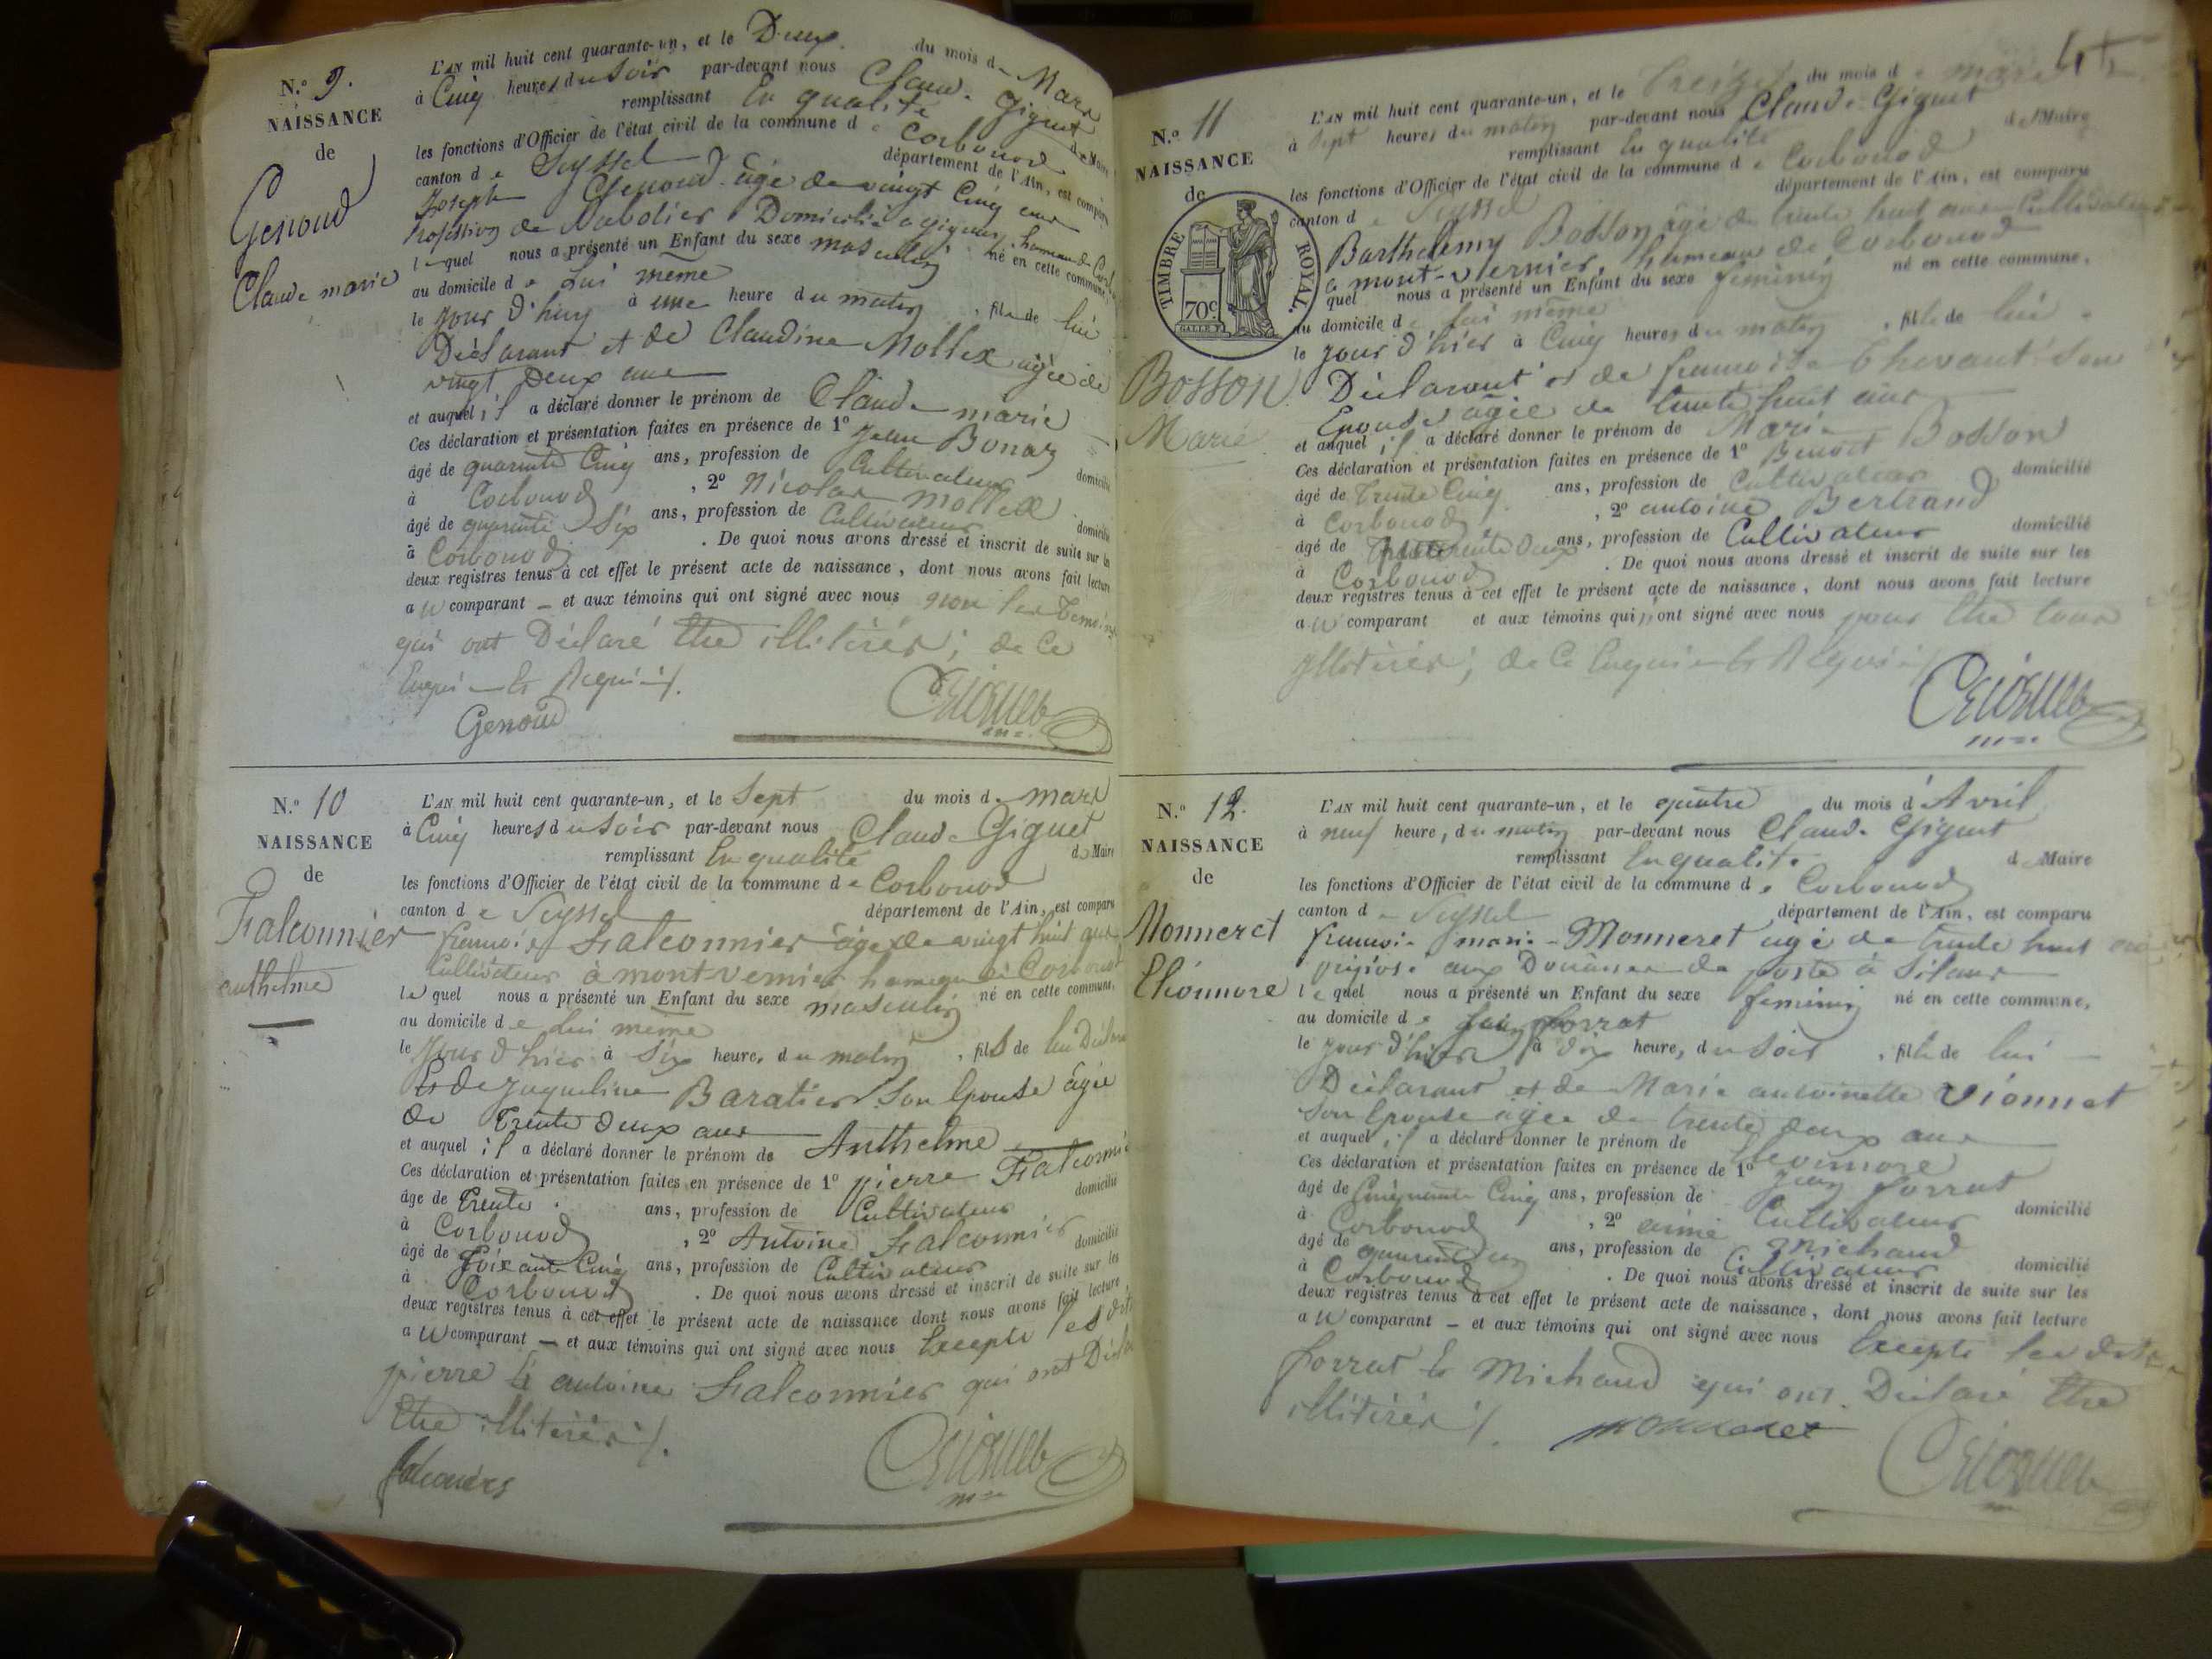 N.º 9.
NAISSANCE
de
Genoud
Claude marie
L'AN mil huit cent quarante-un, et le Deux du mois de Mars
à Cinq heures du Soir par-devant nous Claude Giguet
remplissant En qualité de Maire
les fonctions d'Officier de l'état civil de la commune de Corbonod
canton de Seyssel département de l'Ain, est comparu
Joseph Genoud âgé de vingt Cinq ans
profession de Sabotier Domicilié a gignez hameau de
lequel nous a présenté un Enfant du sexe masculin né en cette commune,
au domicile de Lui même
le Jour d'huy à une heure du matin, fils de lui
Déclarant et de Claudine Mollex agée de
vingt Deux ans
et auquel il a déclaré donner le prénom de Claude marie
Ces déclaration et présentation faites en présence de 1º Jean Bonaz
âgé de quarente Cinq ans, profession de Cultivateur domicilié
à Corbonod, 2º Nicolas mollex
âgé de quarente Six ans, profession de Cultivateur domicilié
à Corbonod. De quoi nous avons dressé et inscrit de suite sur les
deux registres tenus à cet effet le présent acte de naissance, dont nous avons fait lecture
au comparant et aux témoins qui ont signé avec nous non les Temoins
qui ont Déclaré être illitérés; de Ce
Enquis et Requis ./.
Genoud
Giguet
N.º 10
NAISSANCE
de
Falconnier
anthelme
L'AN mil huit cent quarante-un, et le Sept du mois de mars
à Cinq heures du Soir par-devant nous Claude Giguet
remplissant En qualité de Maire
les fonctions d'Officier de l'état civil de la commune de Corbonod
canton de Seyssel département de l'Ain, est comparu
francois Falconnier âgé de vingt huit ans
Cultivateur à mont vernier hameau de Corbonod
lequel nous a présenté un Enfant du sexe masculin né en cette commune,
au domicile de Lui même
le Jour d'hier à Six heure, du matin, fils de lui
Et de Jaqueline Baratier Son Epouse âgée
de Trente deux ans
et auquel il a déclaré donner le prénom de Anthelme
Ces déclaration et présentation faites en présence de 1º pierre Falconnier
âge de Trente ans, profession de Cultivateur domicilié
à Corbonod, 2º Antoine Falconnier
âgé de Soixante Cinq ans, profession de Cultivateur domicilié
à Corbonod. De quoi nous avons dressé et inscrit de suite sur les
deux registres tenus à cet effet le présent acte de naissance dont nous avons fait lecture
au comparant et aux témoins qui ont signé avec nous Excepté les dits
pierre Et antoine Falconnier qui ont
être illitérés ./.
Giguet
N.º 11
NAISSANCE
de
TIMBRE ROYAL.
70 c.
Bosson
Marie
L'AN mil huit cent quarante-un, et le treize du mois de mars
à Sept heures du matin par-devant nous Claude Giguet
remplissant En qualité de Maire
les fonctions d'Officier de l'état civil de la commune de Corbonod
canton de Seyssel département de l'Ain, est comparu
Barthelemy Bosson agé de trente huit ans Cultivateur
a mont-vernier, hameau de Corbonod
quel nous a présenté un Enfant du sexe feminin né en cette commune,
au domicile de lui même
le jour d'hier à Cinq heures du matin, fille de lui
Déclarant et de francoise Chavant Son
Epouse agée de trente huit ans
et auquel il a déclaré donner le prénom de Marie
Ces déclaration et présentation faites en présence de 1º Benoit Bosson
âgé de Trente Cinq ans, profession de Cultivateur domicilié
à Corbonod, 2º antoine Bertrand
âgé de ans, profession de Cultivateur domicilié
à Corbonod. De quoi nous avons dressé et inscrit de suite sur les
deux registres tenus à cet effet le présent acte de naissance, dont nous avons fait lecture
au comparant et aux témoins qui n'ont signé avec nous pour être tous
illitérés; de Ce Enquis et Requis ./.
Giguet
N.º 12.
NAISSANCE
de
Monneret
Eléonnore
L'AN mil huit cent quarante-un, et le quatre du mois d'Avril
à neuf heure, du matin par-devant nous Claude Giguet
remplissant En qualité de Maire
les fonctions d'Officier de l'état civil de la commune de Corbonod
canton de Seyssel département de l'Ain, est comparu
francois marie Monneret agé de trente huit ans
préposé aux Douanes de poste à Silans
lequel nous a présenté un Enfant du sexe feminin né en cette commune,
au domicile de Jean forrat
le jour d'hier à dix heure, du Soir, fille de lui
Déclarant et de Marie antoinette Vionnet
Son Epouse agée de trente deux ans
et auquel il a déclaré donner le prénom de
Ces déclaration et présentation faites en présence de 1º Jean forrat
âgé de Cinquante Cinq ans, profession de Cultivateur domicilié
à Corbonod, 2º aimé Michaud
âgé de ans, profession de Cultivateur domicilié
à Corbonod. De quoi nous avons dressé et inscrit de suite sur les
deux registres tenus à cet effet le présent acte de naissance, dont nous avons fait lecture
au comparant et aux témoins qui ont signé avec nous Excepté les dits
forrat Et Michaud qui ont Déclaré être
illitérés ./.
monneret
Giguet